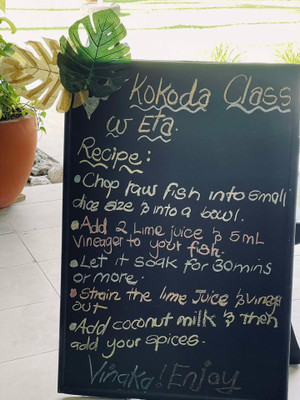 Kokoda Class
w Eta.
Recipe:
• Chop raw fish into small
dice size & into a bowl.
• Add 2 Lime juice & 5mL
vineager to your fish.
• Let it soak for 30mins
or more.
• Strain the lime juice &
out
• Add coconut milk & then
add your spices.
Vinaka! Enjoy